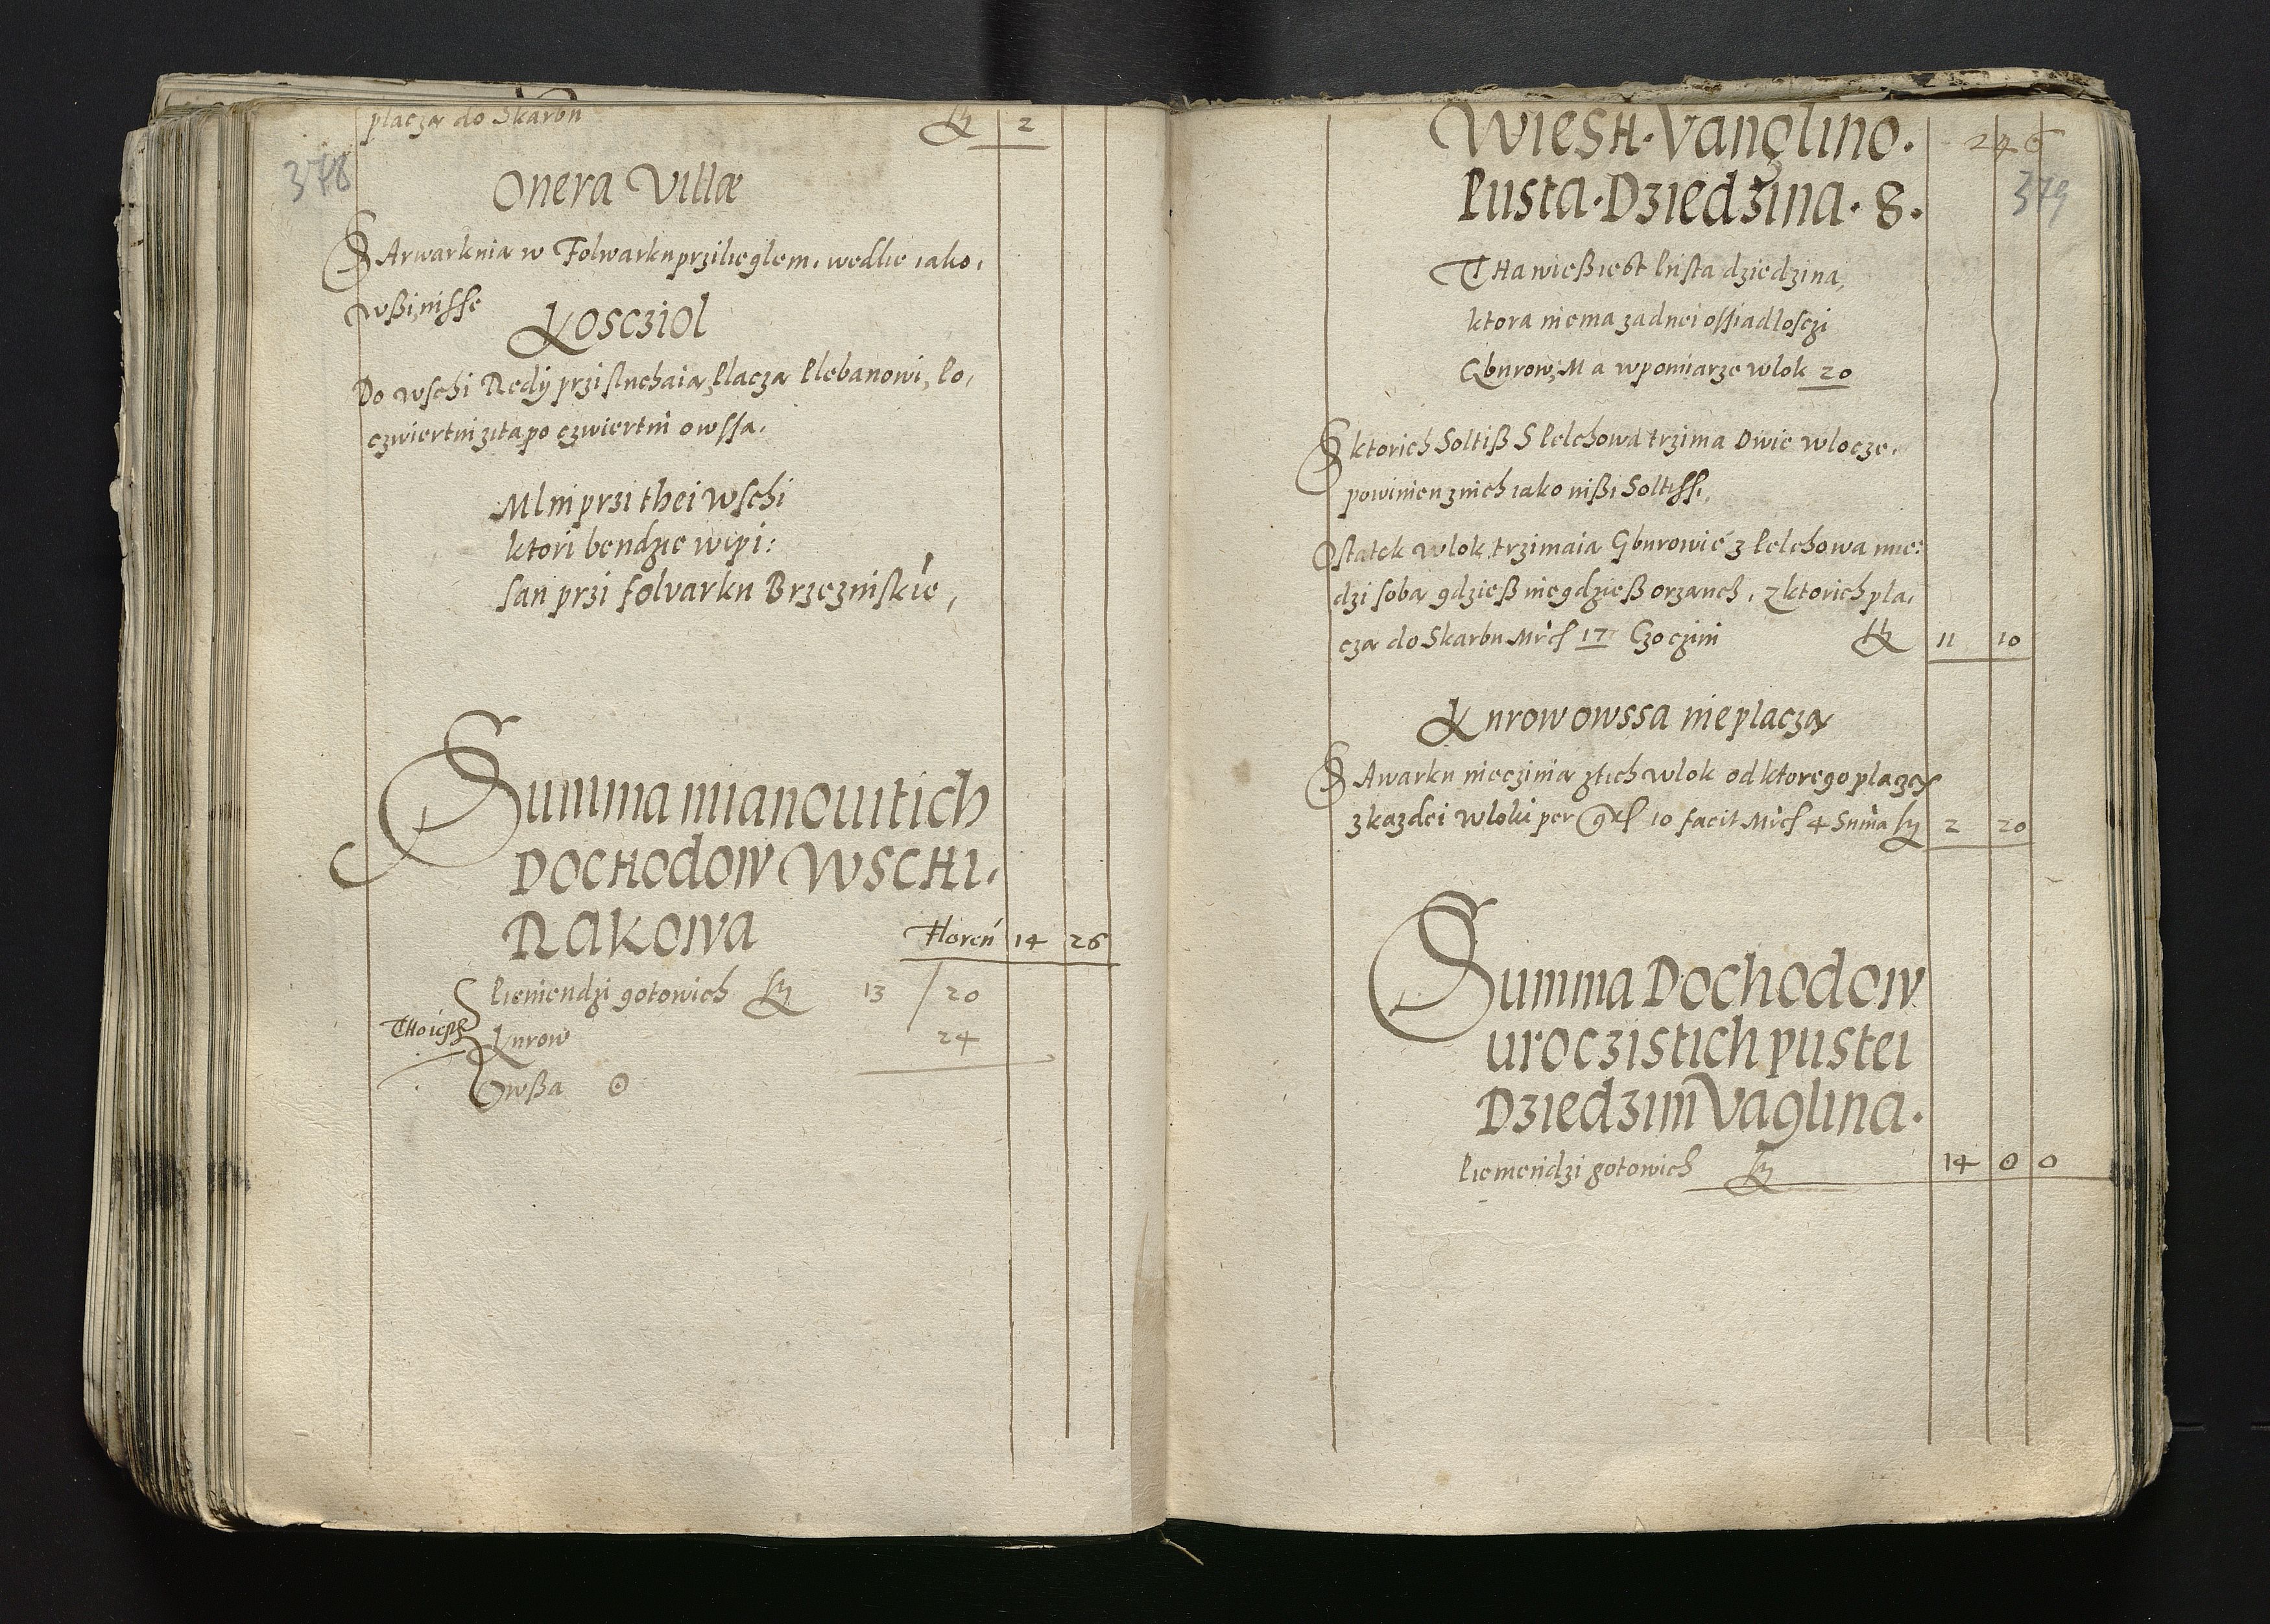 placza do Skarbu fl 2
378
Onera Villæ
SArwarkuia w Folwarku przileglem, wedlie iako,
wßi, nisse
Kosczіol
Do wschi Redÿ przisluchaia, Placza Plebanowi, Po,
czwiertni zita, po czwiertni owssa.
Mlin przi thei wschi
ktori bendzie wipi:
san przi folvarku Brzezniskie,
Summa mianowitich
Dochodow wschi.
Rakowa Floreń 14 26
Pieniendzi gotowich fl 13 / 20
THo iest
Kurow 24
Owßa 0
Wiesh. Vanglino. 246
Pusta. Dziedzina. 8. 379
THa wieß iest Pusta dziedzina,
ktora niema zadnei ossiadlosczi
Gburow, Ma w pomiarze wlok 20
S ktorich Soltiß S Pelchowa trzima Dwie wlocze,
powinien znich iako nißi Soltissi,
Ostatek wlok, trzimaia Gburowie z Pelchowa mie:
dzi soba gdzieß niegdzieß orzanch, z ktorich pla,
cza do Skarbu Mrcs 17 Czoczini fl 11 10
Kurow owssa nie placza
SAwarku nieczinia ztich wlok od ktorego placza
z kazdei wloki per gr 10 facit Mrcs 4 Suma fl 2 20
Summa Dochodow
uroczistich pustei
Dziedzini Vaglina.
Pieniendzi gotowich fl 14 0 0